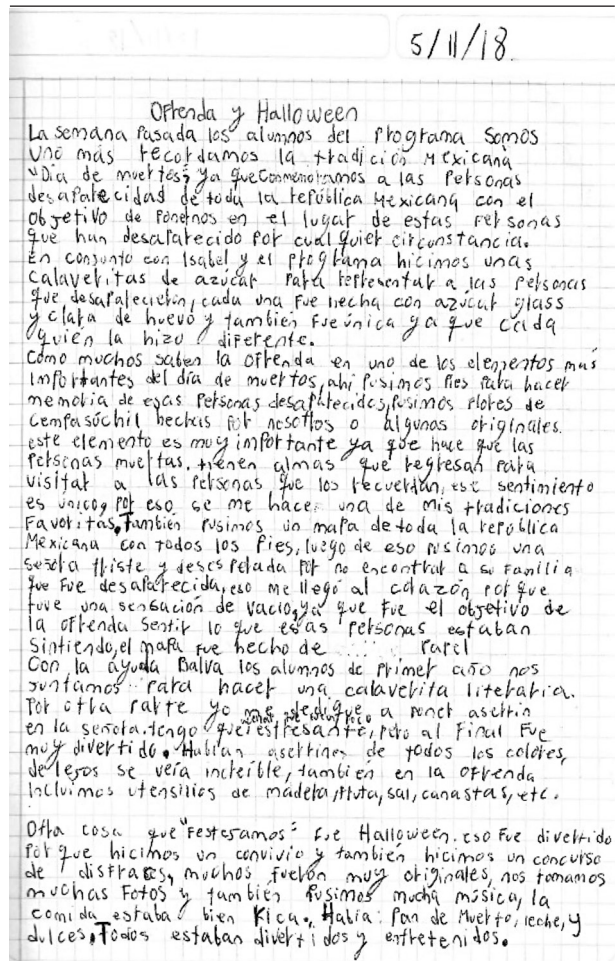 5/11/18.
Ofrenda y Halloween
La semana pasada los alumnos del programa somos
uno más recordamos la tradición Mexicana
"Día de muertos" ya que conmemoramos a las personas
desaparecidas de toda la república Mexicana con el
objetivo de ponernos en el lugar de estas personas
que han desaparecido por cualquier circunstancia.
En conjunto con Isabel y el programa hicimos unas
calaveritas de azúcar para representar a las personas
que desaparecieron, cada una fue hecha con azucar glass
y clara de huevo y también fue única ya que cada
quién la hizo diferente.
Cómo muchos saben la ofrenda en uno de los elementos mas
importantes del día de muertos, ahí pusimos pies para hacer
memoria de esas personas desaparecidas, pusimos flores de
cempasúchil hechas por nosotros o algunas originales.
este elemento es muy importante ya que hace que las
personas muertas, tienen almas que regresan para
visitar a las personas que los recuerdan, ese sentimiento
es único, por eso se me hace una de mis tradiciones
Favoritas, También pusimos un mapa de toda la república
Mexicana con todos los pies, luego de eso pusimos una
señora triste y desesperada por no encontrar a su familia
que fue desaparecida, eso me llegó al corazón porque
tuve una sensación de vacio, ya que fue el objetivo de
la ofrenda sentir lo que esas personas estaban
sintiendo, el mapa fue hecho de papel
Con la ayuda Balva los alumnos de primer año nos
juntamos para hacer una calaverita literaria.
Por otra parte yo me dedique a poner aserrin
en la señora. tengo que estresante, pero al final fue
muy divertido. Habían aserrines de todos los colores,
de lejos se veía increíble, también en la ofrenda
incluimos utensilios de madera, fruta, sal, canastas, etc.
Otra cosa que "Festejamos" fue Halloween. eso fue divertido
porque hicimos un convivio y también hicimos un concurso
de disfraces, muchos fueron muy originales, nos tomamos
muchas fotos y también pusimos mucha música, la
comida estaba bien Rica. Había: Pan de Muerto, leche, y
dulces, Todos estaban divertidos y entretenidos.